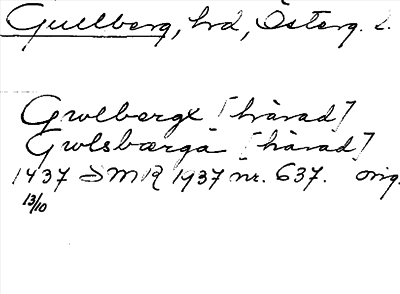 Gullberg, hrd, Österg. l.
Gwlbergx [härad]
Gwlsbærga [härad]
1437 SMR 1937 nr. 637. orig.
13/10